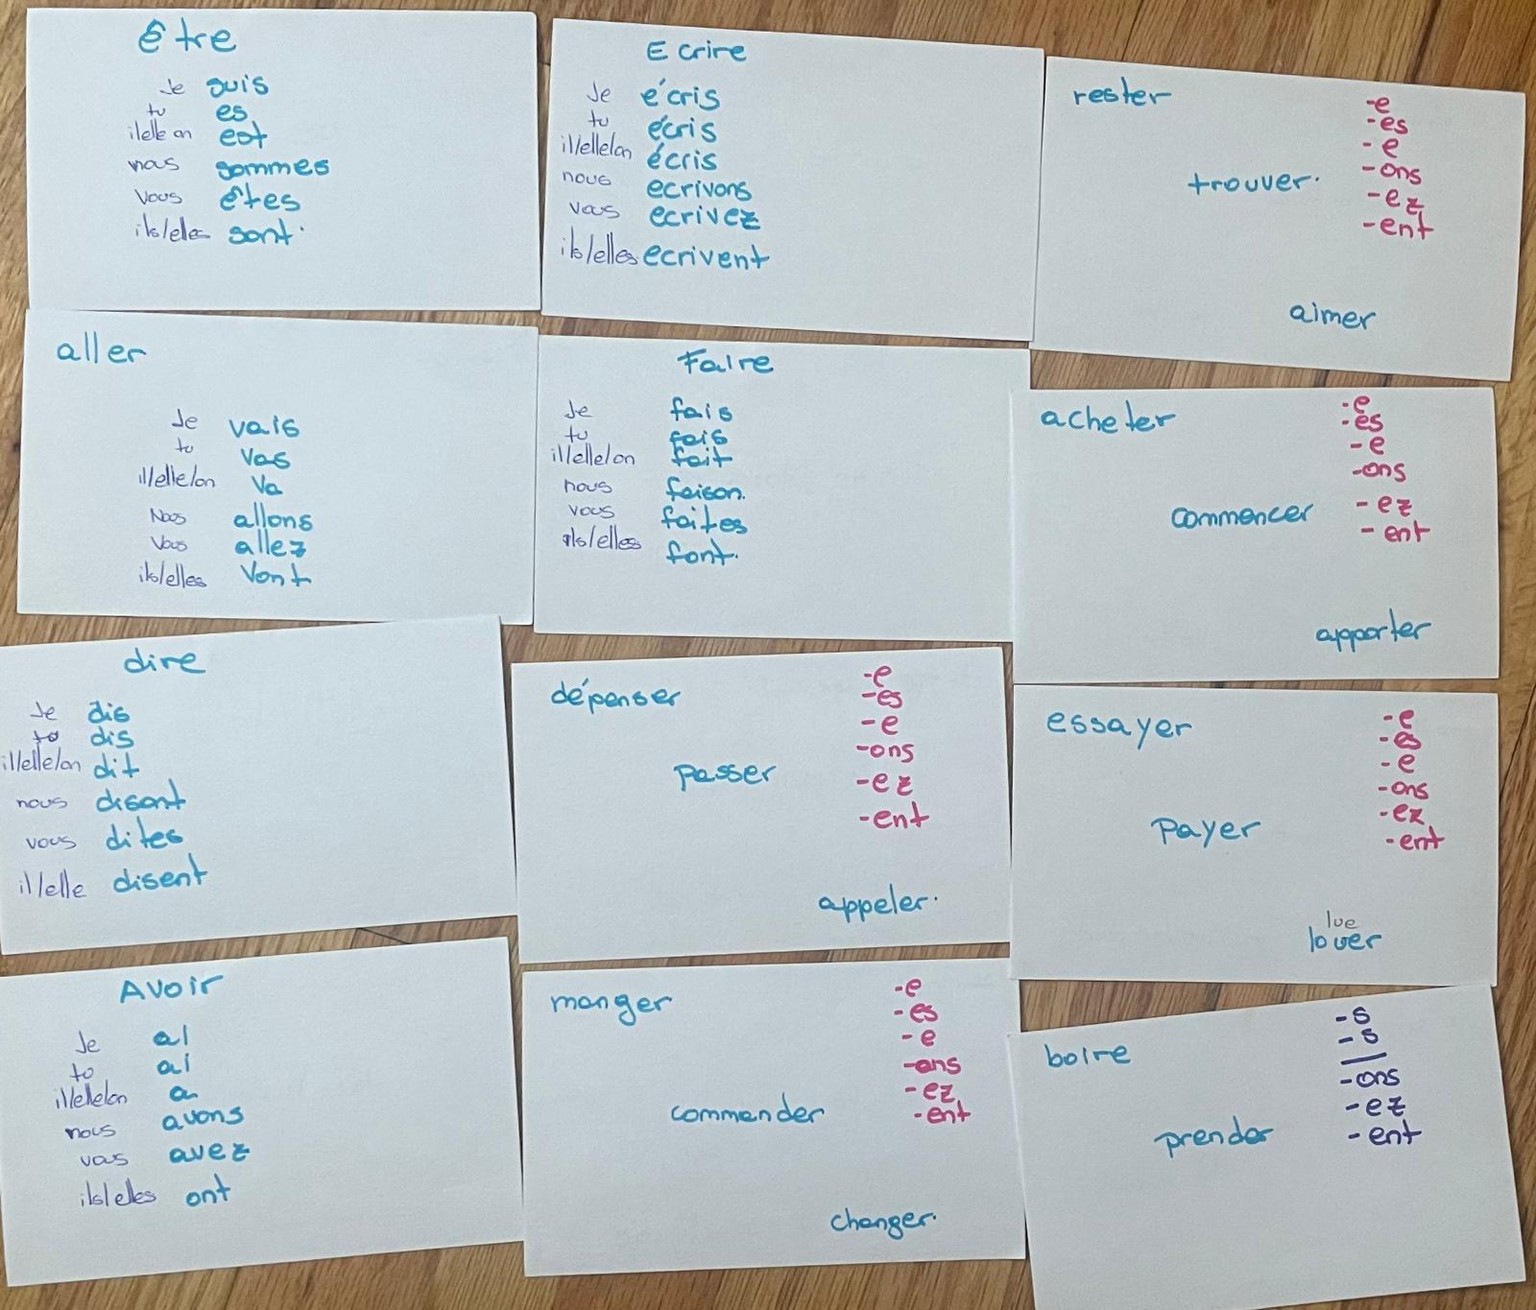 être
Je suis
tu es
il elle on est
nous sommes
vous êtes
ils/elles sont.
Ecrire
Je écris
tu écris
il/elle/on écris
nous ecrivons
vous ecrivez
ils/elles ecrivent
rester
-e
-es
-e
-ons
-ez
-ent
trouver.
aimer
aller
Je vais
tu vas
il/elle/on va
Nous allons
Vous allez
ils/elles vont
Faire
Je fais
tu fais
il/elle/on fait
nous faison.
vous faites
ils/elles font.
acheter
-e
-es
-e
-ons
-ez
-ent
commencer
apporter
dire
Je dis
tu dis
il/elle/on dit
nous disont
vous dites
il/elle disent
dépenser
-e
-es
-e
-ons
-ez
-ent
passer
appeler.
essayer
-e
-es
-e
-ons
-ez
-ent
payer
lue
louer
Avoir
Je ai
tu ai
il/elle/on a
nous avons
vous avez
ils/elles ont
manger
-e
-es
-e
-ons
-ez
-ent
commander
changer.
boire
-s
-s
—
-ons
-ez
-ent
prender